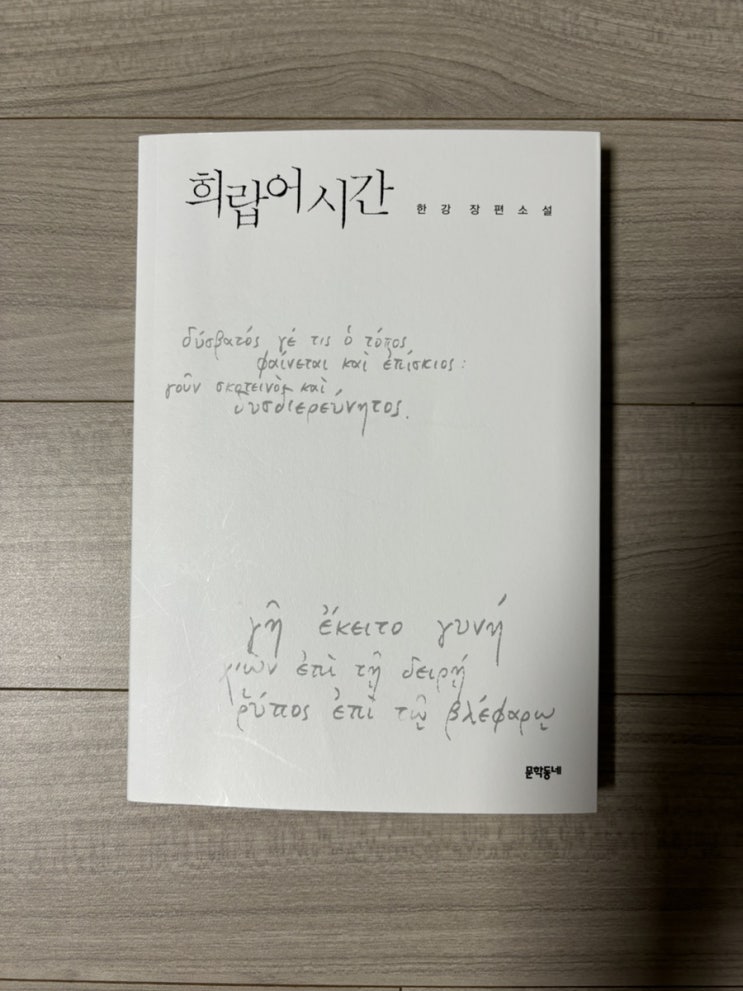 희랍어 시간
한강 장편소설
δύσβατός γέ τις ὁ τόπος
φαίνεται καὶ ἐπίσκιος:
γοῦν σκοτεινὸς καὶ
δυσδιερεύνητος.
γῇ ἔκειτο γυνή
χιὼν ἐπὶ τῇ δειρῇ
ῥύπος ἐπὶ τῷ βλέφαρῳ
문학동네